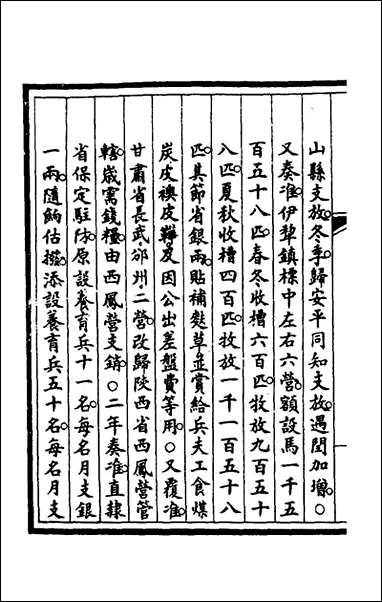 山縣支放冬季歸安平同知支放遇閏加增○
又奏准伊犂鎮標中左右六營額設馬一千五
百五十八匹春冬收槽六百匹牧放九百五十
八匹夏秋收槽四百匹牧放一千一百五十八
匹其節省銀兩貼補麩草並賞給兵夫工食煤
炭皮襖皮鞾及因公出差盤費等用○又覆准
甘肅省長武邠州二營改歸陝西省西鳳營管
轄歲需錢糧由西鳳營支銷○二年奏准直隸
省保定駐防原設養育兵十一名每名月支銀
一兩隨餉估撥添設養育兵五十名每名月支